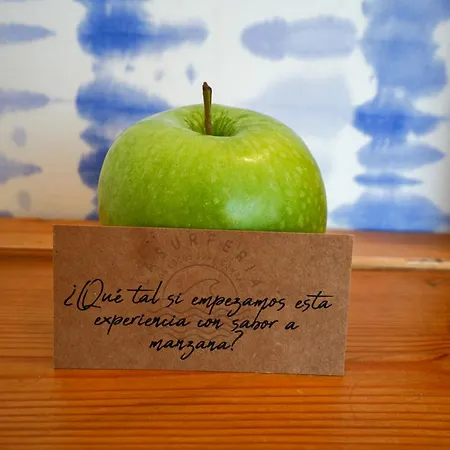 A SURFERIA
¿Qué tal si empezamos esta
experiencia con sabor a
manzana?